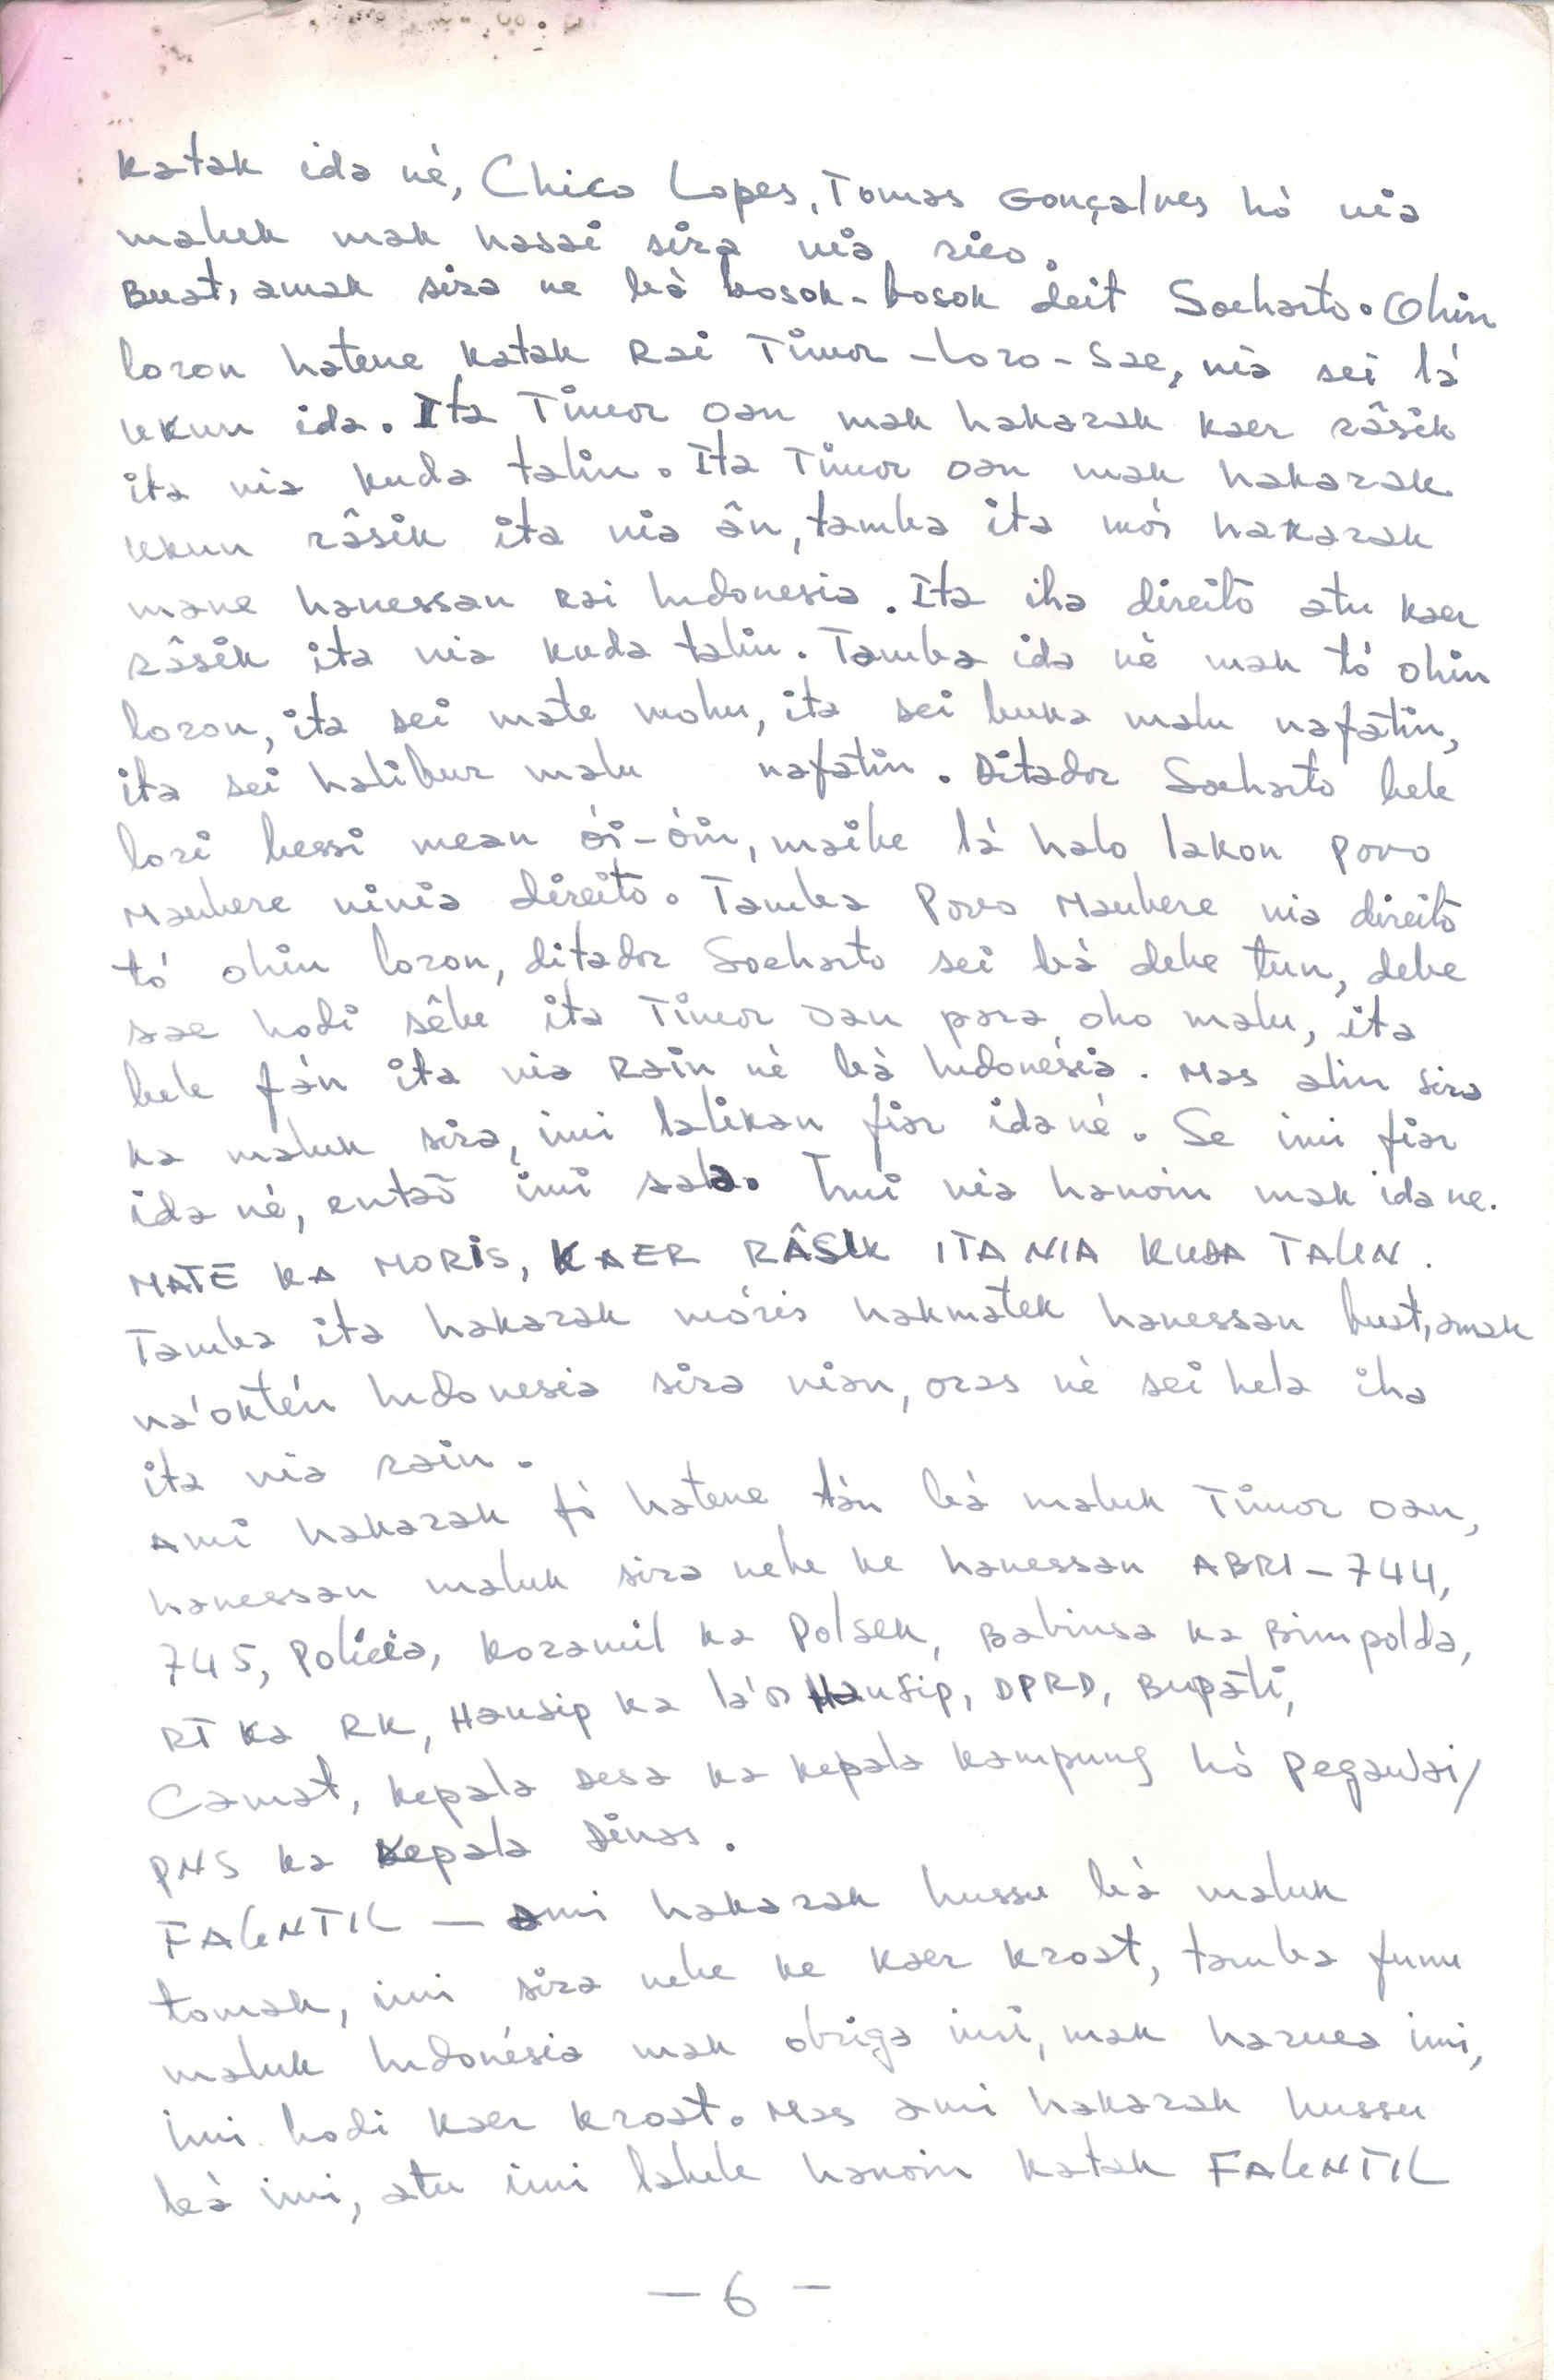 Katak ida né, Chico Lopes, Tomas Gonçalves hó nia
maluk mak hasai sira nia rico.
Buat, amak sira ne bá bosok-bosok deit Soeharto. Ohin
loron hatene katak Rai Timor-Loro-Sae, nia sei lá
ukun ida. Ita Timor oan mak hakarak kaer râsik
ita nia kuda talin. Ita Timor oan mak hakarak
ukun râsik ita nia ân, tamba ita mós hakarak
mane hanessan Rai Indonesia. Ita iha direito atu kaer
râsik ita nia kuda talin. Tamba ida né mak tó ohin
loron, ita sei mate mohu, ita sei buka malu nafátin,
ita sei halibur malu nafatin. Ditador Soeharto bele
lori bessi mean ói-óin, maibe lá halo lakon Povo
Maubere ninia direito. Tamba Povo Maubere nia direito
tó ohin loron, ditador Soeharto sei bá dehe tun, dehe
sae hodi sêbe ita Timor oan para oho malu, ita
bele fán ita nia Rain né bá Indonésia. Mas alin sira
ka maluk sira, imi lalikan fiar ida né. Se imi fiar
ida né, entaõ imi sala. Imi nia hanoin mak ida ne.
MATE KA MORIS, KAER RÂSIK ITA NIA KUDA TALIN.
Tamba ita hakarak móris hakmatek hanessan buat, amak
na'oktén Indonesia sira nian, oras né sei hela iha
ita nia rain.
Ami hakarak fó hatene tán bá maluk Timor oan,
hanessan maluk sira nebe ke hanessan ABRI-744,
745, Policia, Koramil ka Polsek, Babinsa ka Bimpolda,
RT ka RK, Hansip ka lá'os Hansip, DPRD, Bupáti,
Camat, kepala desa ka kepala kampung hó Pegawai/
PNS ka Kepala Dinas.
FALINTIL — ami hakarak hussu bá maluk
tomak, imi sira nebe ke kaer kroat, tamba funu
maluk Indonésia mak obriga imi, mak haruca imi,
imi hodi kaer kroat. Mas ami hakarak hussu
bá imi, atu imi labele hanoin katak FALINTIL
— 6 —